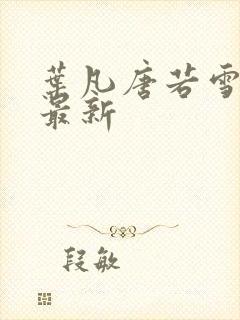 葉凡唐若雪
最新
段敏